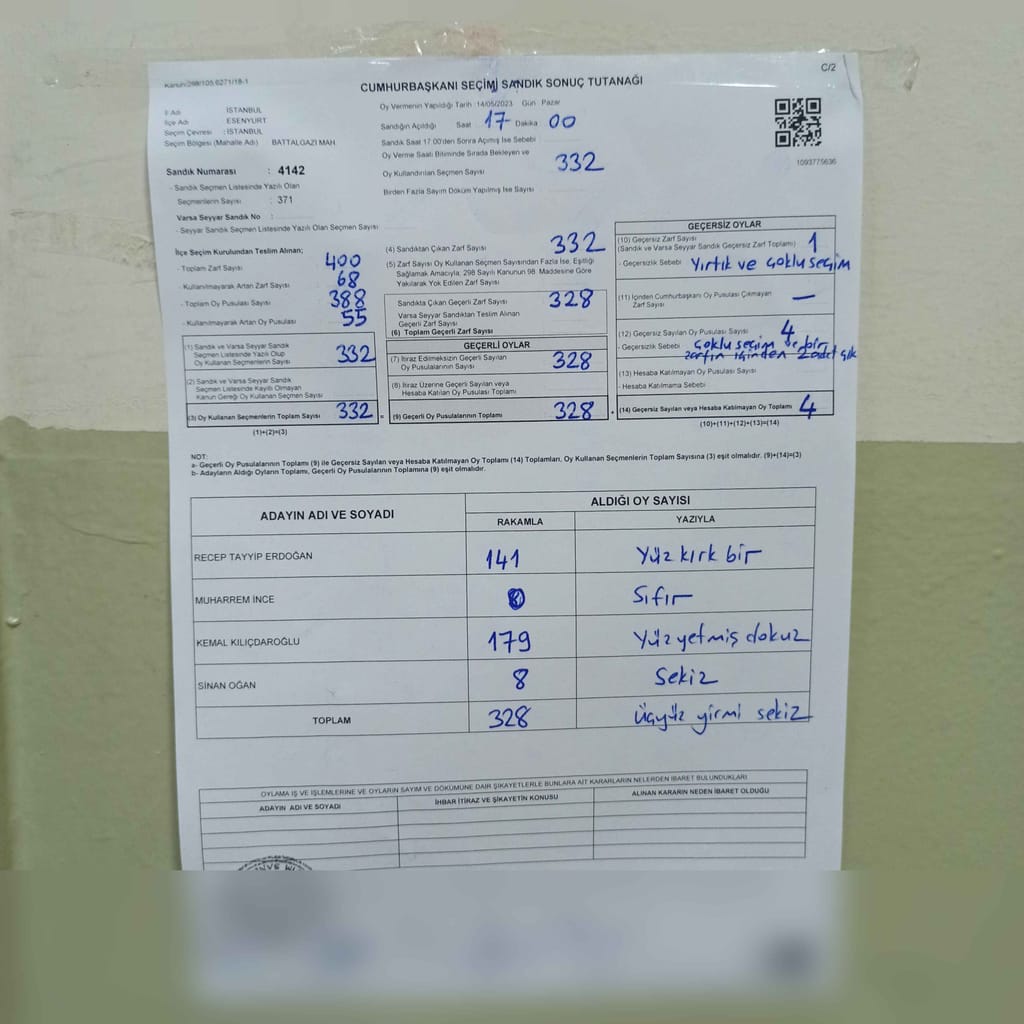 Kanun/298/105.6271/18-1
C/2
CUMHURBAŞKANI SEÇİMİ SANDIK SONUÇ TUTANAĞI
İl Adı İSTANBUL
İlçe Adı ESENYURT
Seçim Çevresi : İSTANBUL
Seçim Bölgesi (Mahalle Adı) BATTALGAZİ MAH
Sandık Numarası : 4142
- Sandık Seçmen Listesinde Yazılı Olan
Seçmenlerin Sayısı : 371
Varsa Seyyar Sandık No :
- Seyyar Sandık Seçmen Listesinde Yazılı Olan Seçmen Sayısı
Oy Vermenin Yapıldığı Tarih :14/05/2023 Gün Pazar
Sandığın Açıldığı Saat 17 Dakika 00
Sandık Saat 17:00'den Sonra Açılmış İse Sebebi
Oy Verme Saati Bitiminde Sırada Bekleyen ve
Oy Kullandırılan Seçmen Sayısı 332
Birden Fazla Sayım Döküm Yapılmış İse Sayısı
1093775636
İlçe Seçim Kurulundan Teslim Alınan;
- Toplam Zarf Sayısı 400
- Kullanılmayarak Artan Zarf Sayısı 68
- Toplam Oy Pusulası Sayısı 388
- Kullanılmayarak Artan Oy Pusulası 55
(1) Sandık ve Varsa Seyyar Sandık
Seçmen Listesinde Yazılı Olup
Oy Kullanan Seçmenlerin Sayısı 332
(2) Sandık ve Varsa Seyyar Sandık
Seçmen Listesinde Kayıtlı Olmayan
Kanun Gereği Oy Kullanan Seçmen Sayısı
(3) Oy Kullanan Seçmenlerin Toplam Sayısı 332 =
(1)+(2)=(3)
(4) Sandıktan Çıkan Zarf Sayısı 332
(5) Zarf Sayısı Oy Kullanan Seçmen Sayısından Fazla İse, Eşitliği
Sağlamak Amacıyla, 298 Sayılı Kanunun 98. Maddesine Göre
Yakılarak Yok Edilen Zarf Sayısı
Sandıkta Çıkan Geçerli Zarf Sayısı 328
Varsa Seyyar Sandıktan Teslim Alınan
Geçerli Zarf Sayısı
(6) Toplam Geçerli Zarf Sayısı
GEÇERLİ OYLAR
(7) İtiraz Edilmeksizin Geçerli Sayılan
Oy Pusulasının Sayısı 328
(8) İtiraz Üzerine Geçerli Sayılan veya
Hesaba Katılan Oy Pusulası Toplamı
(9) Geçerli Oy Pusulalarının Toplamı 328 +
GEÇERSİZ OYLAR
(10) Geçersiz Zarf Sayısı
(Sandık ve Varsa Seyyar Sandık Geçersiz Zarf Toplamı) 1
- Geçersizlik Sebebi Yırtık ve çoklu seçim
(11) İçinden Cumhurbaşkanı Oy Pusulası Çıkmayan
Zarf Sayısı —
(12) Geçersiz Sayılan Oy Pusulası Sayısı 4
- Geçersizlik Sebebi Çoklu seçim ve bir
zarfın içinden 2 adet çık
(13) Hesaba Katılmayan Oy Pusulası Sayısı
- Hesaba Katılmama Sebebi
(14) Geçersiz Sayılan veya Hesaba Katılmayan Oy Toplamı 4
(10)+(11)+(12)+(13)=(14)
NOT:
a- Geçerli Oy Pusulalarının Toplamı (9) ile Geçersiz Sayılan veya Hesaba Katılmayan Oy Toplamı (14) Toplamları, Oy Kullanan Seçmenlerin Toplam Sayısına (3) eşit olmalıdır. (9)+(14)=(3)
b- Adayların Aldığı Oyların Toplamı, Geçerli Oy Pusulalarının Toplamına (9) eşit olmalıdır.
ADAYIN ADI VE SOYADI ALDIĞI OY SAYISI
RAKAMLA YAZIYLA
RECEP TAYYİP ERDOĞAN 141 Yüz kırk bir
MUHARREM İNCE 0 Sıfır
KEMAL KILIÇDAROĞLU 179 Yüz yetmiş dokuz
SİNAN OĞAN 8 Sekiz
TOPLAM 328 Üçyüz yirmi sekiz
OYLAMA İŞ VE İŞLEMLERİNE VE OYLARIN SAYIM VE DÖKÜMÜNE DAİR ŞİKAYETLERLE BUNLARA AİT KARARLARIN NELERDEN İBARET BULUNDUKLARI
ADAYIN ADI VE SOYADI İHBAR İTİRAZ VE ŞİKAYETİN KONUSU ALINAN KARARIN NEDEN İBARET OLDUĞU